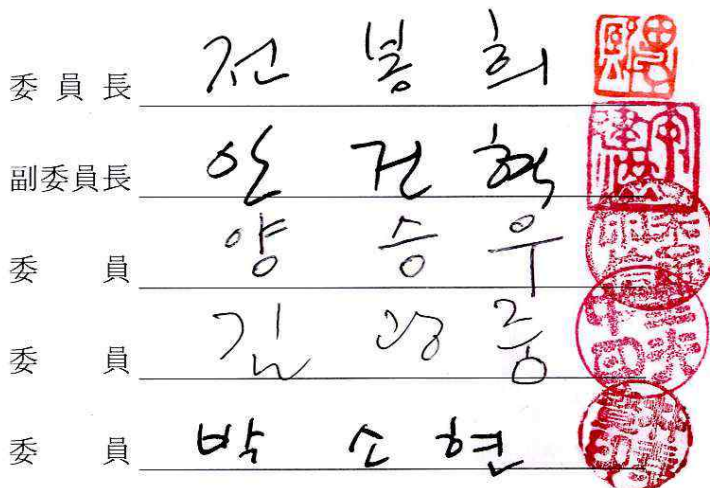 委員長 전 봉 희
副委員長 안 건 혁
委員 양 승 우
委員 김 광 중
委員 박 소 현